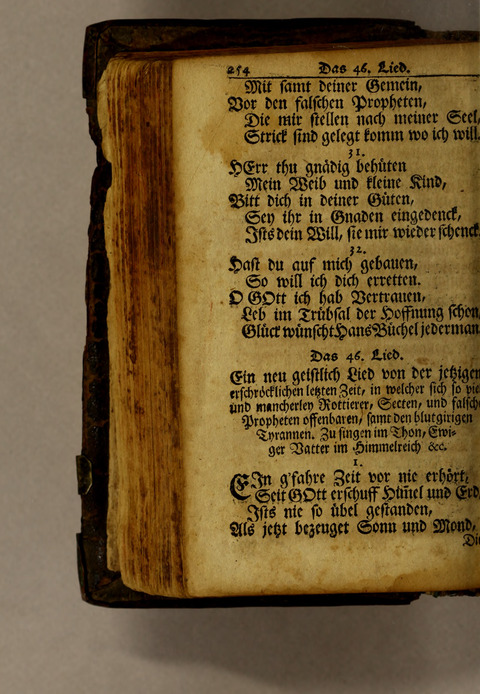 254 Das 46. Lied.
Mit samt deiner Gemein,
Vor den falschen Propheten,
Die mir stellen nach meiner Seel,
Strick sind gelegt komm wo ich will.
31.
HErr thu gnädig behüten
Mein Weib und kleine Kind,
Bitt dich in deiner Güten,
Sey ihr in Gnaden eingedenck,
Ists dein Will, sie mir wieder schenck
32.
Hast du auf mich gebauen,
So will ich dich erretten.
O GOtt ich hab Vertrauen,
Leb im Trübsal der Hoffnung schon,
Glück wünscht Hans Büchel jederman
Das 46. Lied.
Ein neu geistlich Lied von der jetzigen
erschröcklichen letzten Zeit, in welcher sich so vie
und mancherley Rottierer, Secten, und falsche
Propheten offenbaren, samt den blutgirigen
Tyrannen. Zu singen im Thon, Ewi-
ger Vatter im Himmelreich &c.
1.
EIn g'fahre Zeit vor nie erhört,
Seit GOtt erschuff Him̃el und Erd,
Ists nie so übel gestanden,
Als jetzt bezeuget Sonn und Mond,
Die